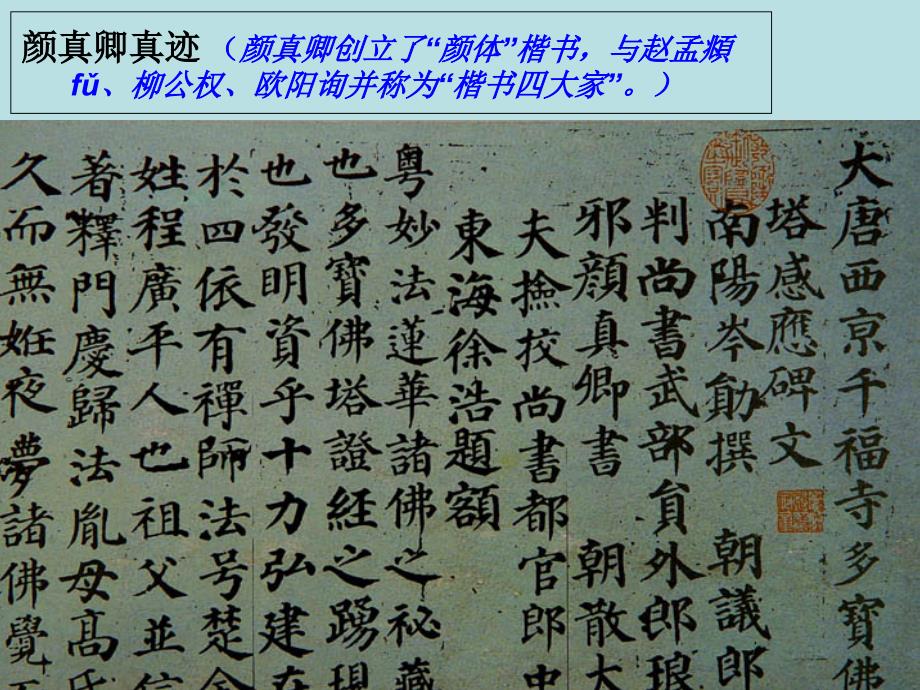 颜真卿真迹（颜真卿创立了“颜体”楷书，与赵孟頫
fǔ、柳公权、欧阳询并称为“楷书四大家”。）
大唐西京千福寺多寶佛
塔感應碑文
南陽岑勛撰 朝議郎
判尚書武部員外郎琅
邪顏真卿書 朝散大
夫撿挍尚書都官郎中
東海徐浩題額
粵妙法蓮華諸佛之祕藏
也多寶佛塔證經之踴現
也發明資乎十力弘建在
於四依有禪師法号楚金
姓程廣平人也祖父並信
著釋門慶歸法胤母高氏
久而無姙夜夢諸佛覺